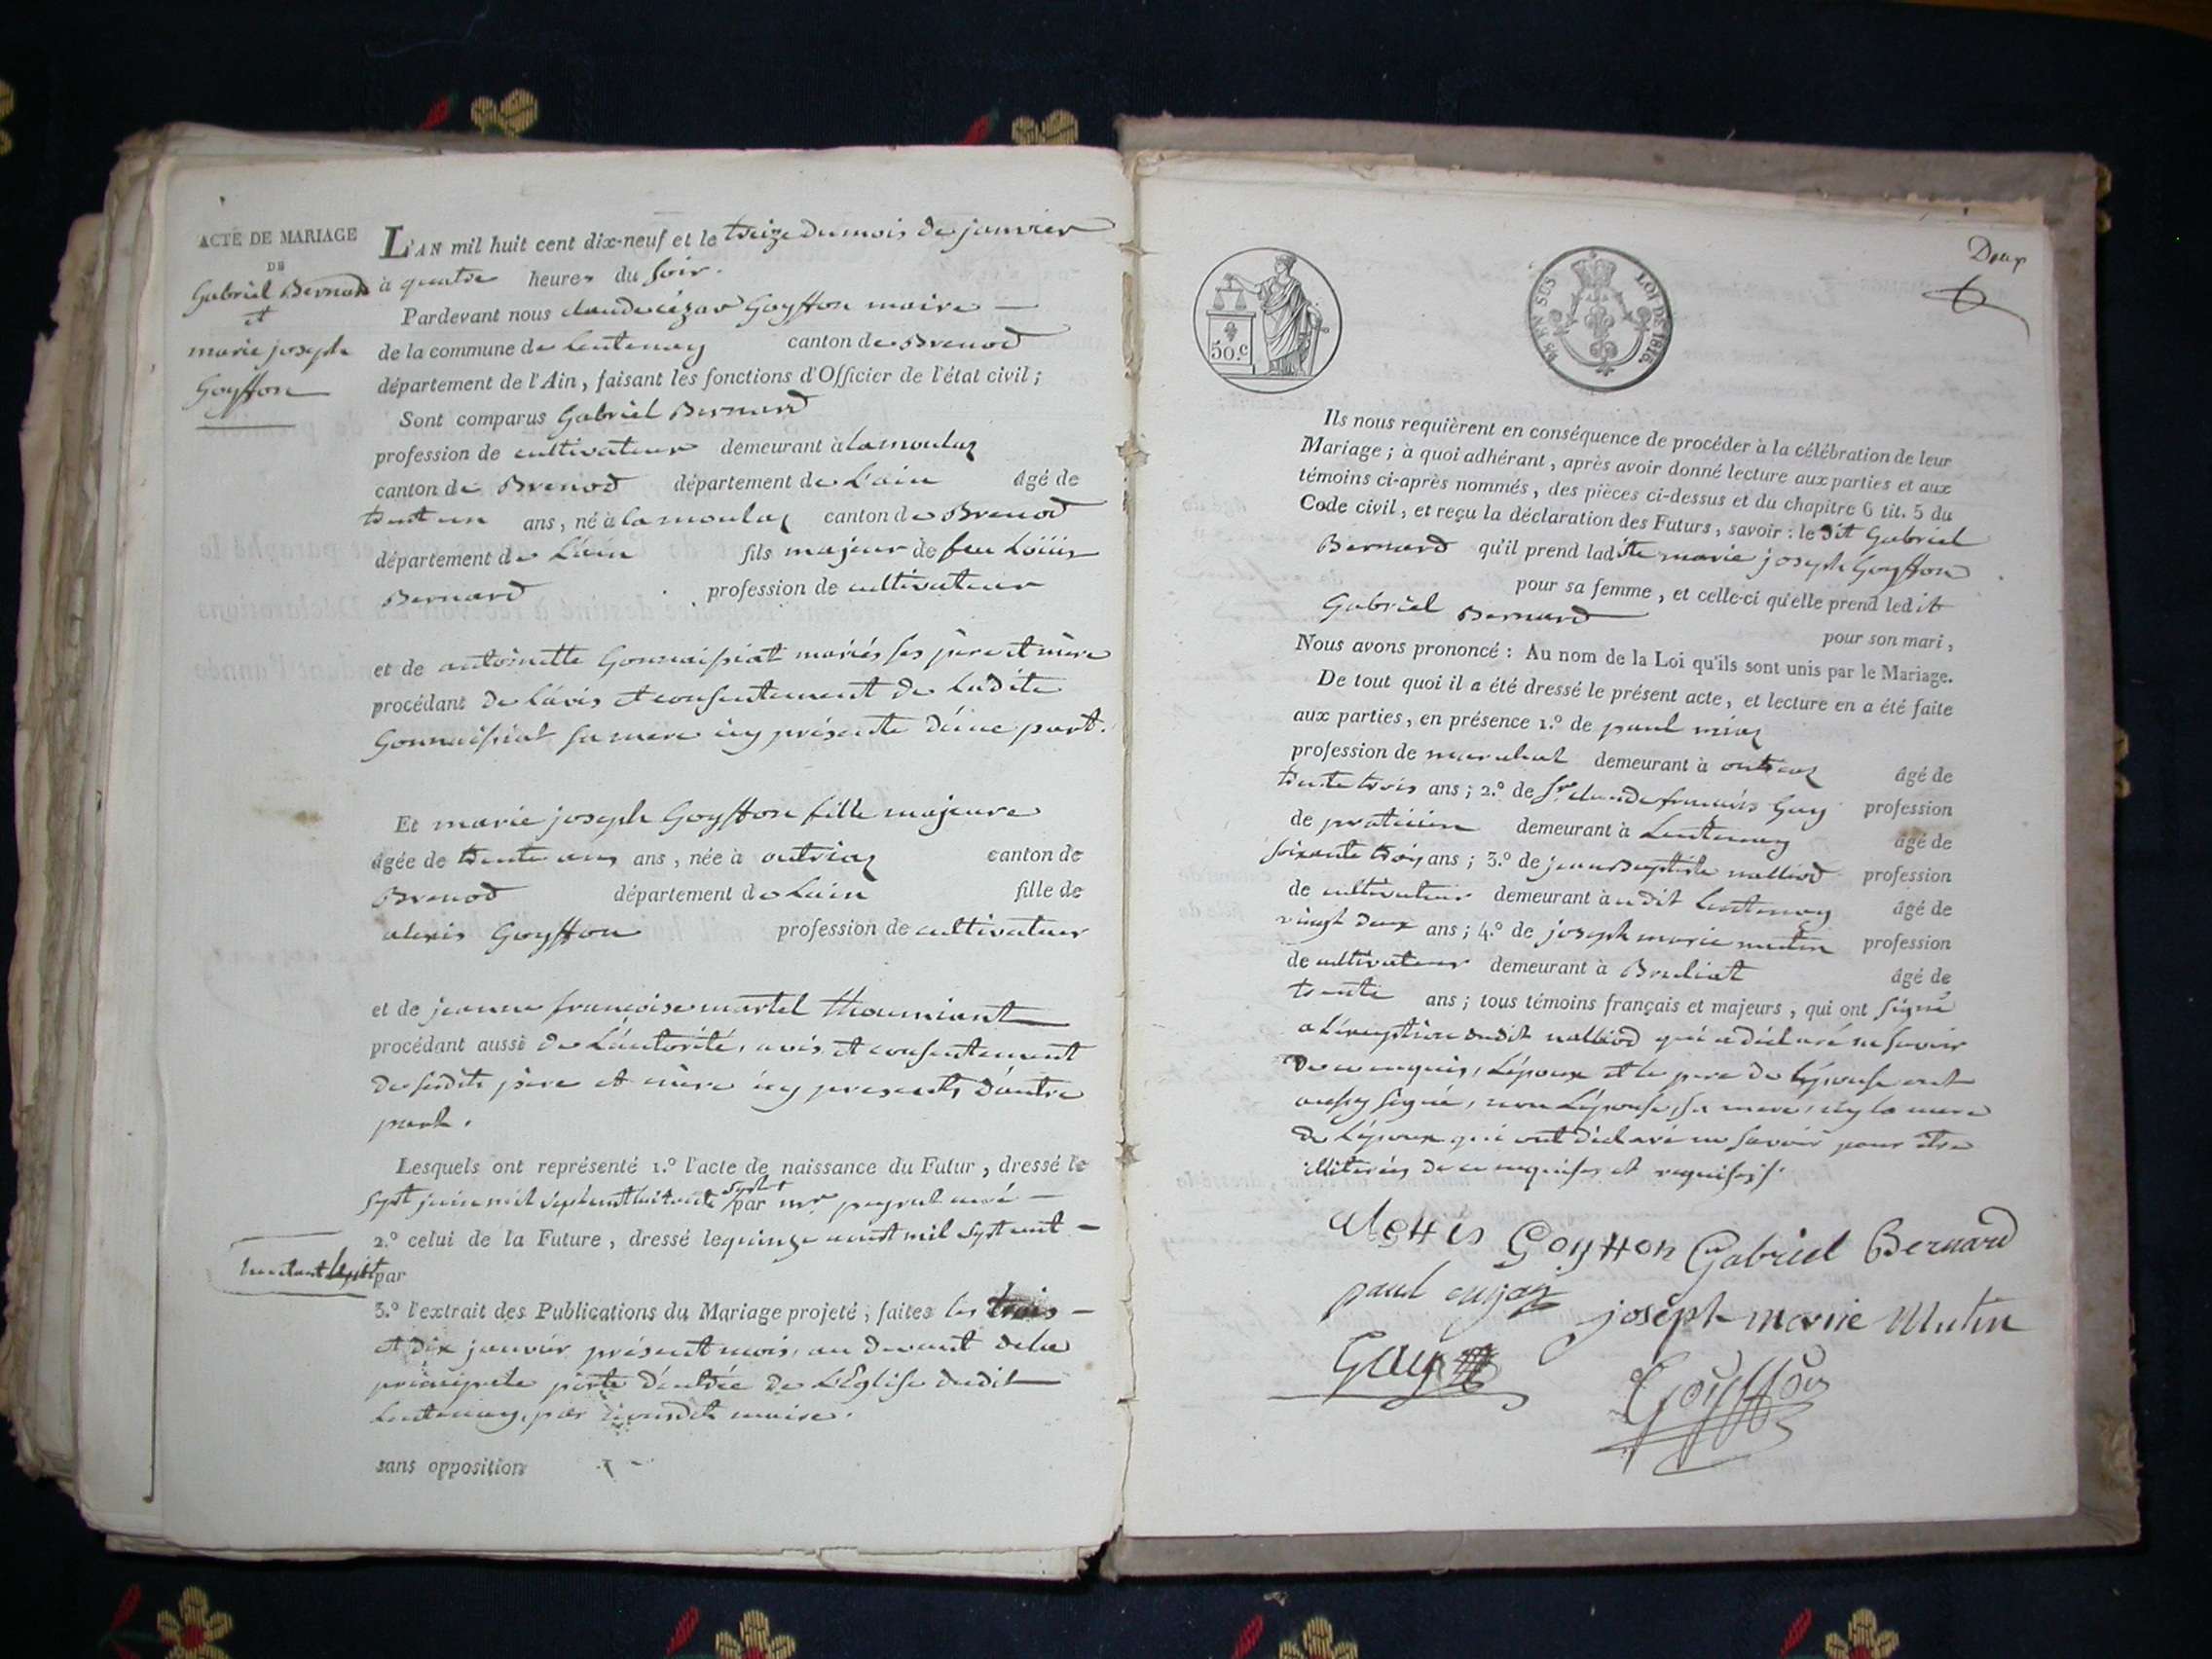 ACTE DE MARIAGE
DE
Gabriel Bernard
et
marie joseph
Goyffon
L'AN mil huit cent dix-neuf et le treize du mois de janvier
à quatre heures du soir.
Pardevant nous claude cézar Goyffon maire
de la commune de Lentenay canton de Brenod
département de l'Ain, faisant les fonctions d'Officier de l'état civil;
Sont comparus Gabriel Bernard
profession de cultivateur demeurant à lamoulaz
canton de Brenod département de L'ain âgé de
trent un ans, né à lamoulaz canton de Brenod
département de L'ain fils majeur de feu Loüis
Bernard profession de cultivateur
et de antoinette Gonnaissiat mariés ses père et mère
procédant de L'avis et consentement de Ladite
Gonnaissiat sa mere icy présente d'une part.
Et marie joseph Goyffon fille majeure
âgée de trente ans, née à outriaz canton de
Brenod département de Lain fille de
alexis Goyffon profession de cultivateur
et de jeanne françoise martel
procédant aussi de L'autorité, avis et consentement
de sesdits père et mère icy presents d'autre
part.
Lesquels ont représenté 1.° l'acte de naissance du Futur, dressé le
sept juin mil sept cent huitante sept par mr. curé
2.° celui de la Future, dressé le quinze aoust mil sept cent
par
3.° l'extrait des Publications du Mariage projeté, faites les trois
et dix janvier présent mois, au devant de la
principale porte d'entrée de L'Eglise dudit
Lentenay, par nousdit maire.
sans opposition
Deux
50.c
EN SUS
LOI DE 1816.
Ils nous requièrent en conséquence de procéder à la célébration de leur
Mariage; à quoi adhérant, après avoir donné lecture aux parties et aux
témoins ci-après nommés, des pièces ci-dessus et du chapitre 6 tit. 5 du
Code civil, et reçu la déclaration des Futurs, savoir: le dit Gabriel
Bernard qu'il prend ladite marie joseph Goyffon
pour sa femme, et celle-ci qu'elle prend ledit
Gabriel Bernard
pour son mari,
Nous avons prononcé: Au nom de la Loi qu'ils sont unis par le Mariage.
De tout quoi il a été dressé le présent acte, et lecture en a été faite
aux parties, en présence 1.° de paul
profession de marechal demeurant à outriaz âgé de
trente trois ans; 2.° de Sr. claude françois Guy profession
de praticien demeurant à Lentenay âgé de
soixante trois ans; 3.° de jean Baptiste nalliod profession
de cultivateur demeurant audit Lentenay âgé de
vingt deux ans; 4.° de joseph marie mutin profession
de cultivateur demeurant à Bruliat âgé de
trente ans; tous témoins français et majeurs, qui ont signé
a L'exception dudit nalliod qui a déclaré ne savoir
de ce enquis, L'époux et le pere de L'épouse ont
aussy signé, non L'épouse, sa mere, icy la mere
de L'époux qui ont déclaré ne savoir pour être
illiterées de ce enquises et requises
alexis Goyffon Gabriel Bernard
paul
joseph marie Mutin
Guy
Goyffon